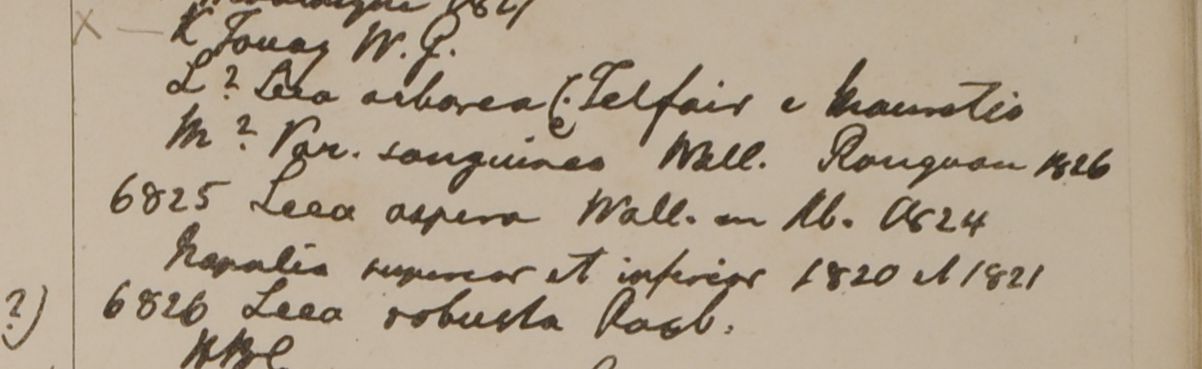 1821
X — K Tavoy W. G.
L? Leea arborea (Telfair e Mauritio
M? Var. sanguinea Wall. Rangoon 1826
6825 Leea aspera Wall. in Rb. 1824
Napalia superior et inferior 1820 et 1821
?) 6826 Leea robusta Roxb.
HBC